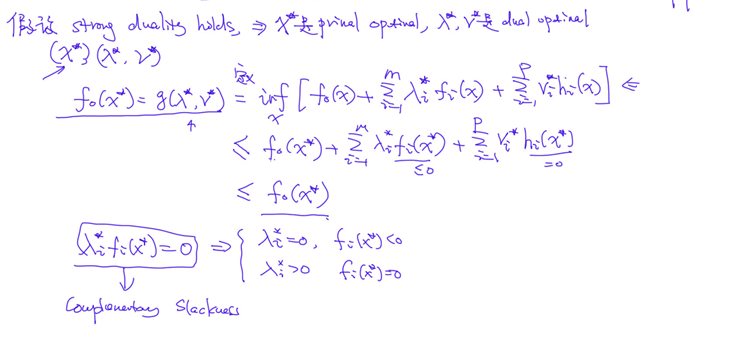 假设 strong duality holds, ⇒ x*是 primal optimal, λ*, ν*是 dual optimal
(x*) (λ*, ν*)
定义
f₀(x*) = g(λ*, ν*) = inf_x [ f₀(x) + Σ_{i=1}^m λᵢ* fᵢ(x) + Σ_{i=1}^p νᵢ* hᵢ(x) ] ⇐
≤ f₀(x*) + Σ_{i=1}^m λᵢ* fᵢ(x*) + Σ_{i=1}^p νᵢ* hᵢ(x*)
≤0 =0
≤ f₀(x*)
λᵢ* fᵢ(x*) = 0 ⇒ { λᵢ* = 0, fᵢ(x*) < 0
λᵢ* > 0 fᵢ(x*) = 0
Complementary Slackness